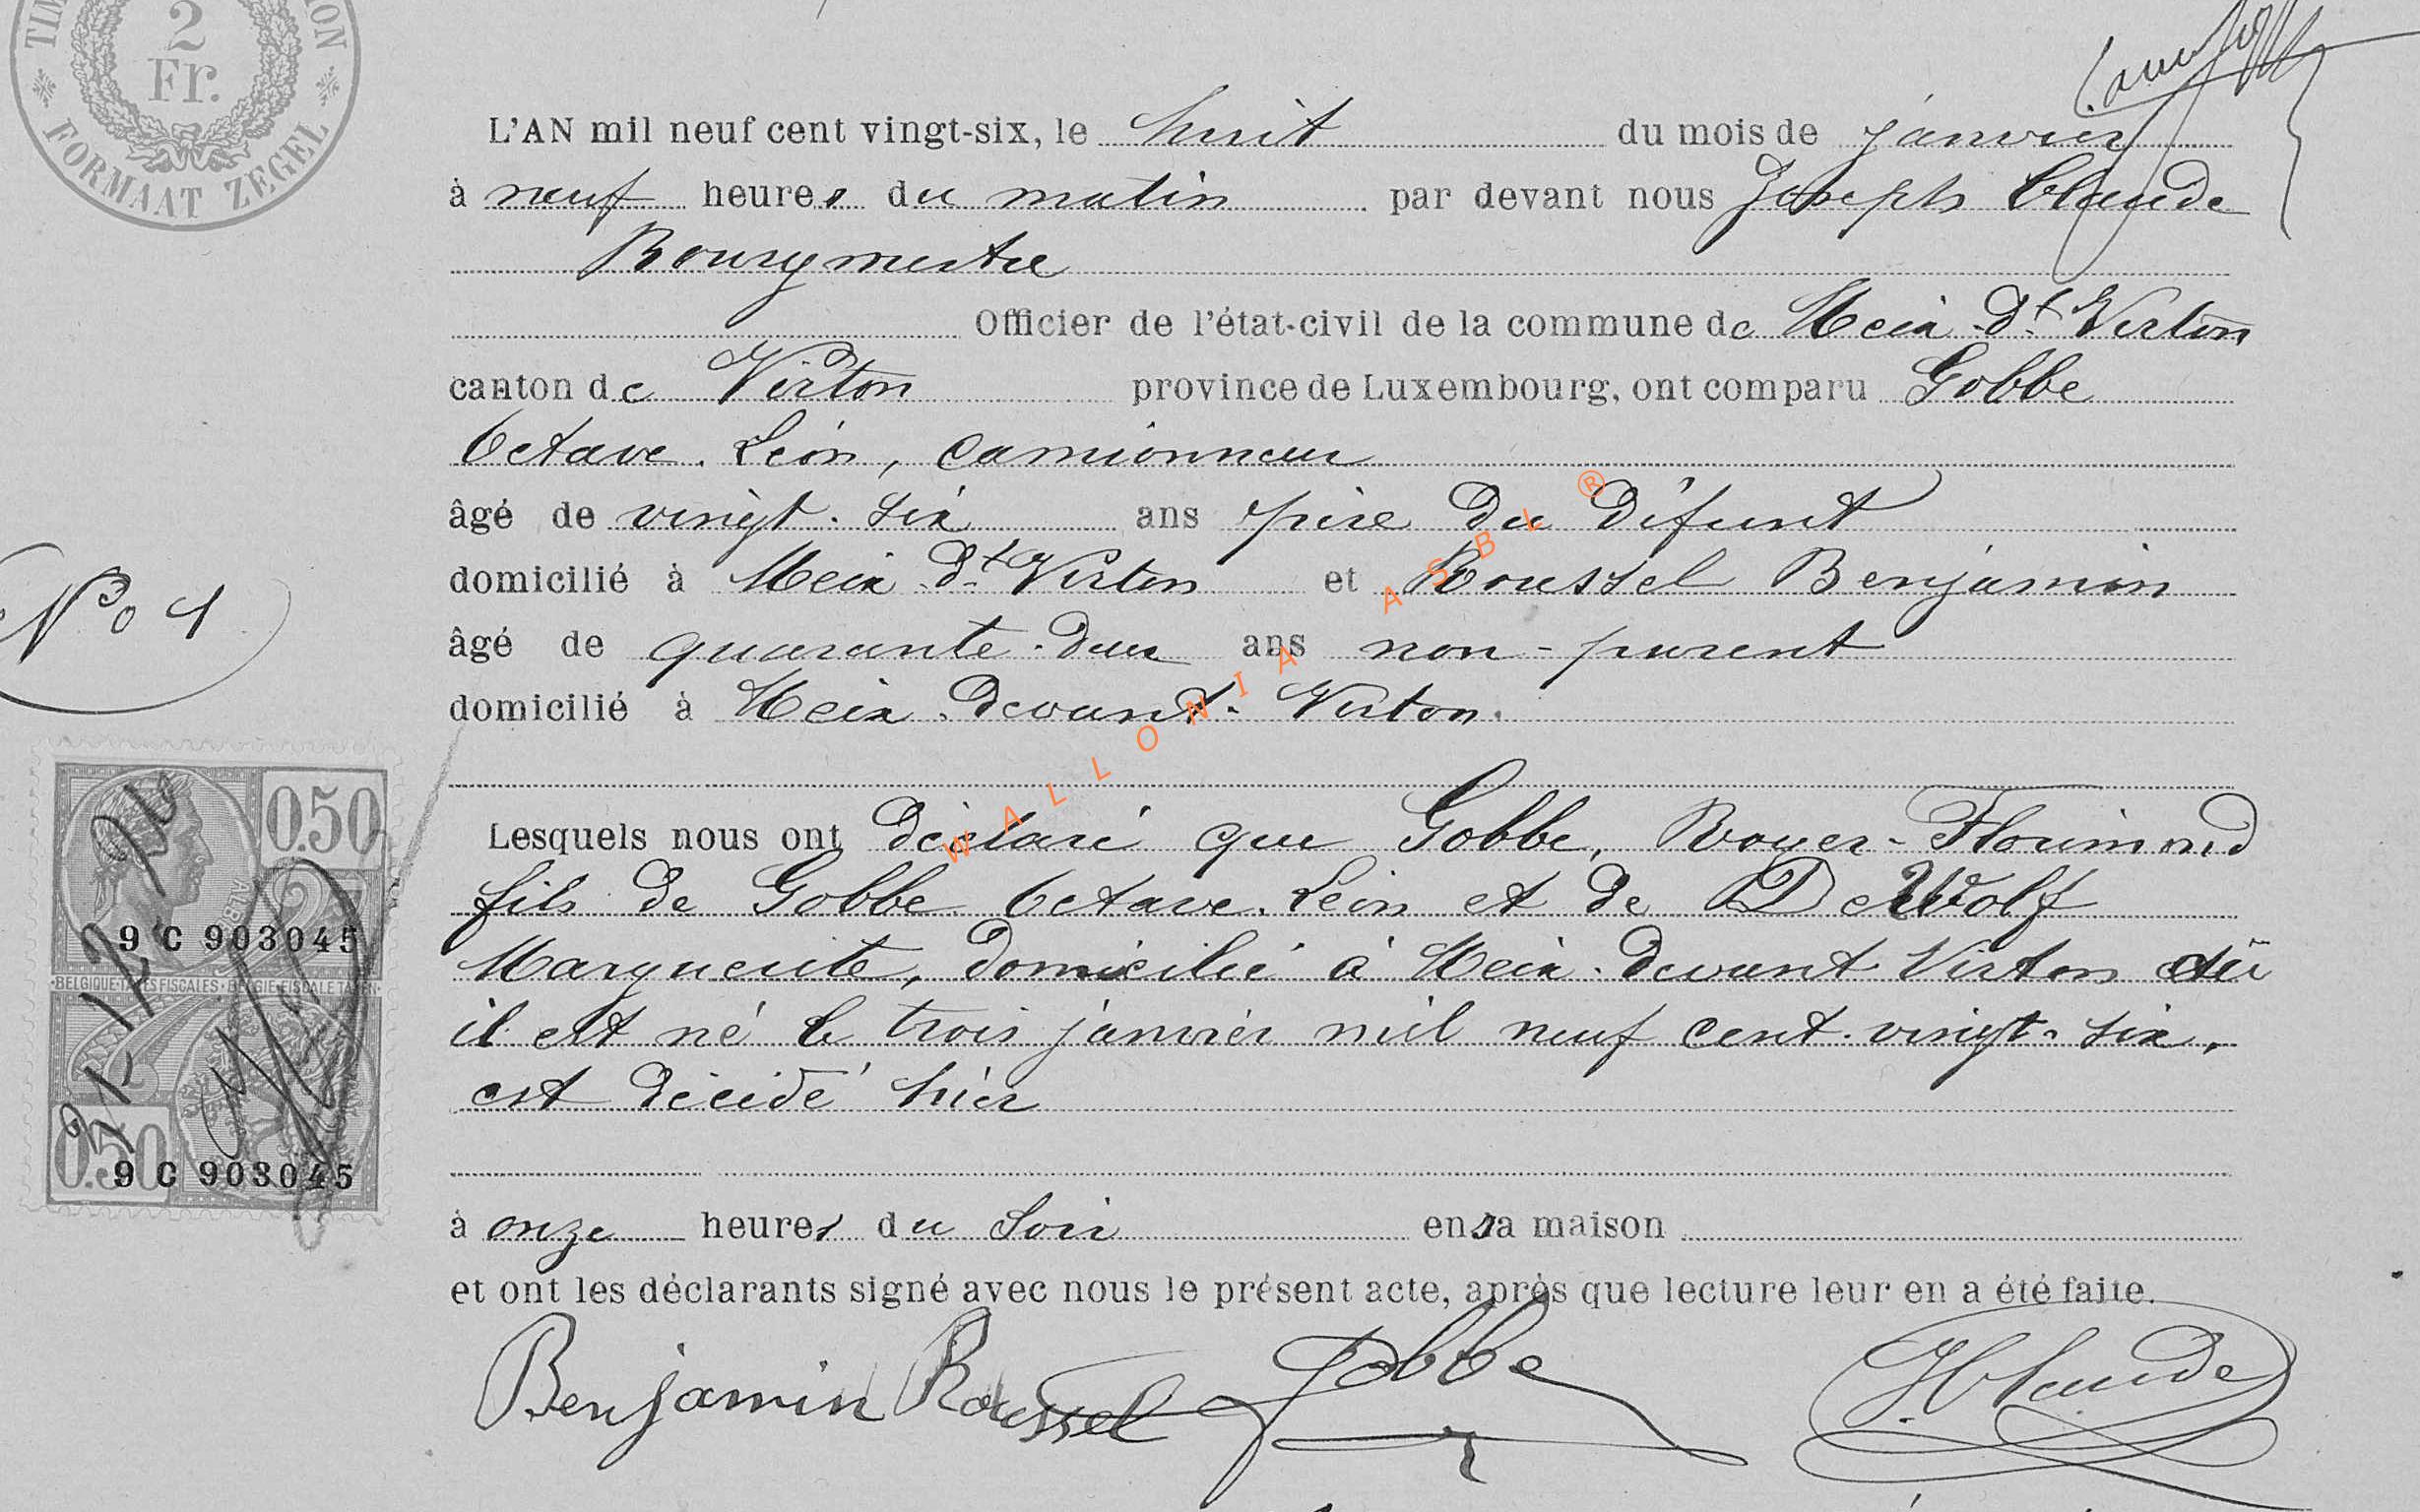 2
Fr.
FORMAAT ZEGEL
L'AN mil neuf cent vingt-six, le huit du mois de janvier
à neuf heures du matin par devant nous Joseph Claude
Bourgmestre
Officier de l'état-civil de la commune de Meix-dt Virton
canton de Virton province de Luxembourg, ont comparu Gobbe
Octave. Léon, camionneur
âgé de vingt-six ans père du défunt
domicilié à Meix-dt Virton et Roussel Benjamin
No 1
âgé de quarante-deux ans non-parent
domicilié à Meix-devant-Virton.
Lesquels nous ont déclaré que Gobbe, Royer-Florimond
fils de Gobbe Octave. Léon et de De Wolf
Marguerite, domicilié à Meix-devant Virton où
il est né le trois janvier mil neuf cent vingt-six,
est décédé hier
à onze heures du soir en sa maison
et ont les déclarants signé avec nous le présent acte, après que lecture leur en a été faite.
Benjamin Roussel Gobbe J Claude
0.50
ALBERT
9 C 903045
BELGIQUE-TAXES FISCALES - BELGIE-FISCALE TAXEN
0.50
9 C 903045
WALLONIA ASBL ®